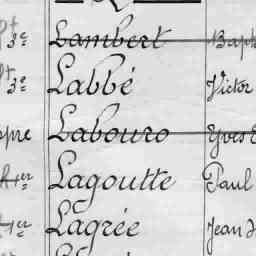 Lambert
3e Labbé Victor
Labouro Yves
Lagoutte Paul
Lagrée Jean